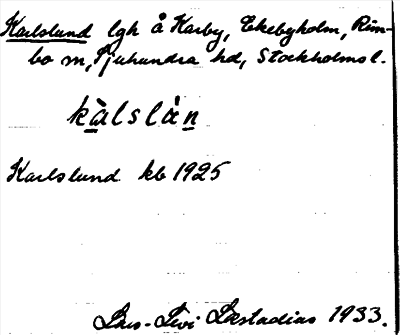 Karlslund lgh å Karby, Ekebyholm, Rim-
bo sn, Sjuhundra hd, Stockholms l.
kàlslán
Karlslund kb 1925
Læstadius 1933.